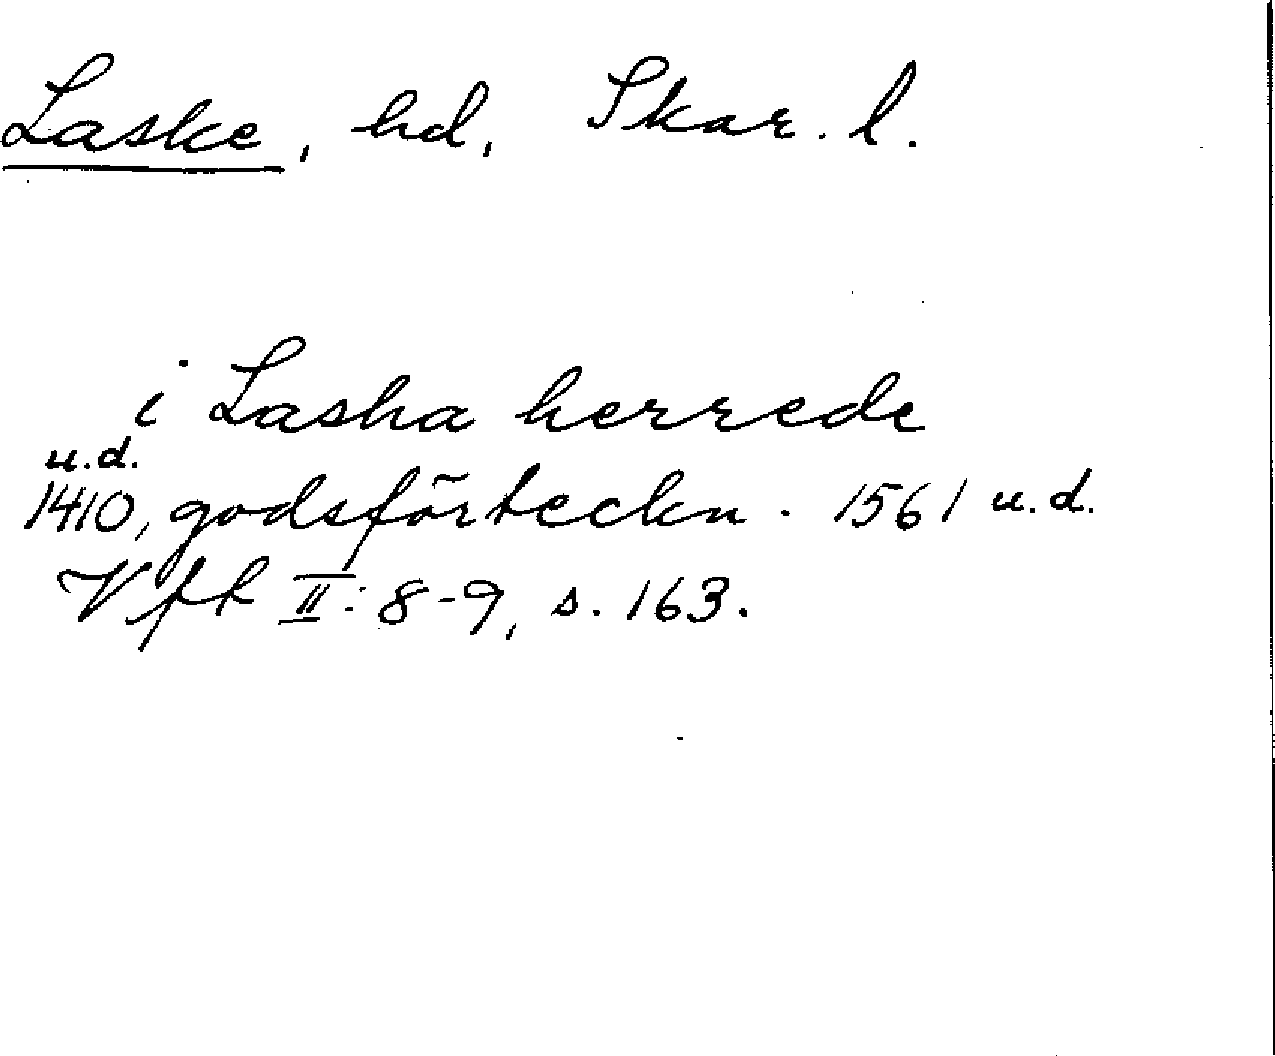 Laske, hd, Skar. l.
i Lasha herrede
u.d.
1410, godsförteckn. 1561 u.d.
Vft II: 8-9, s. 163.